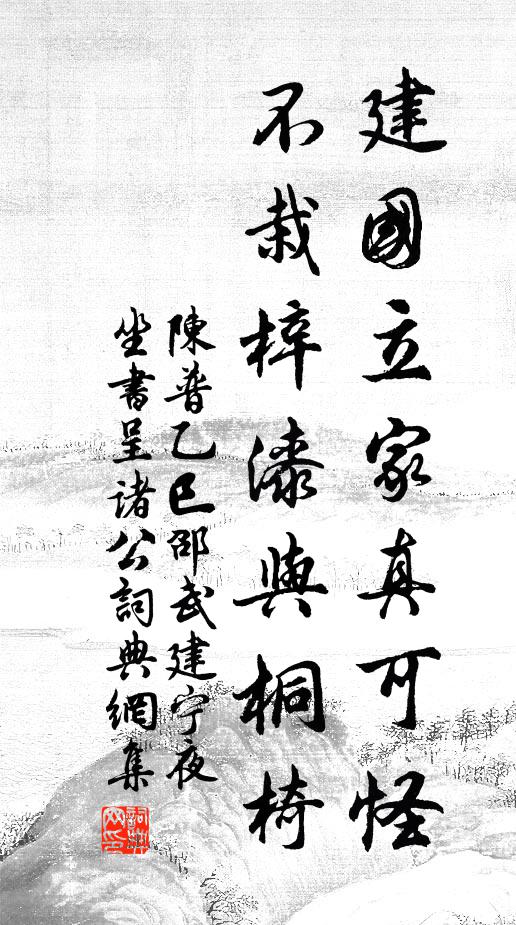 建國立家真可怪
不栽梓漆與桐椅
陳普乙巳邵武建宁夜
坐書呈諸公詞典網集